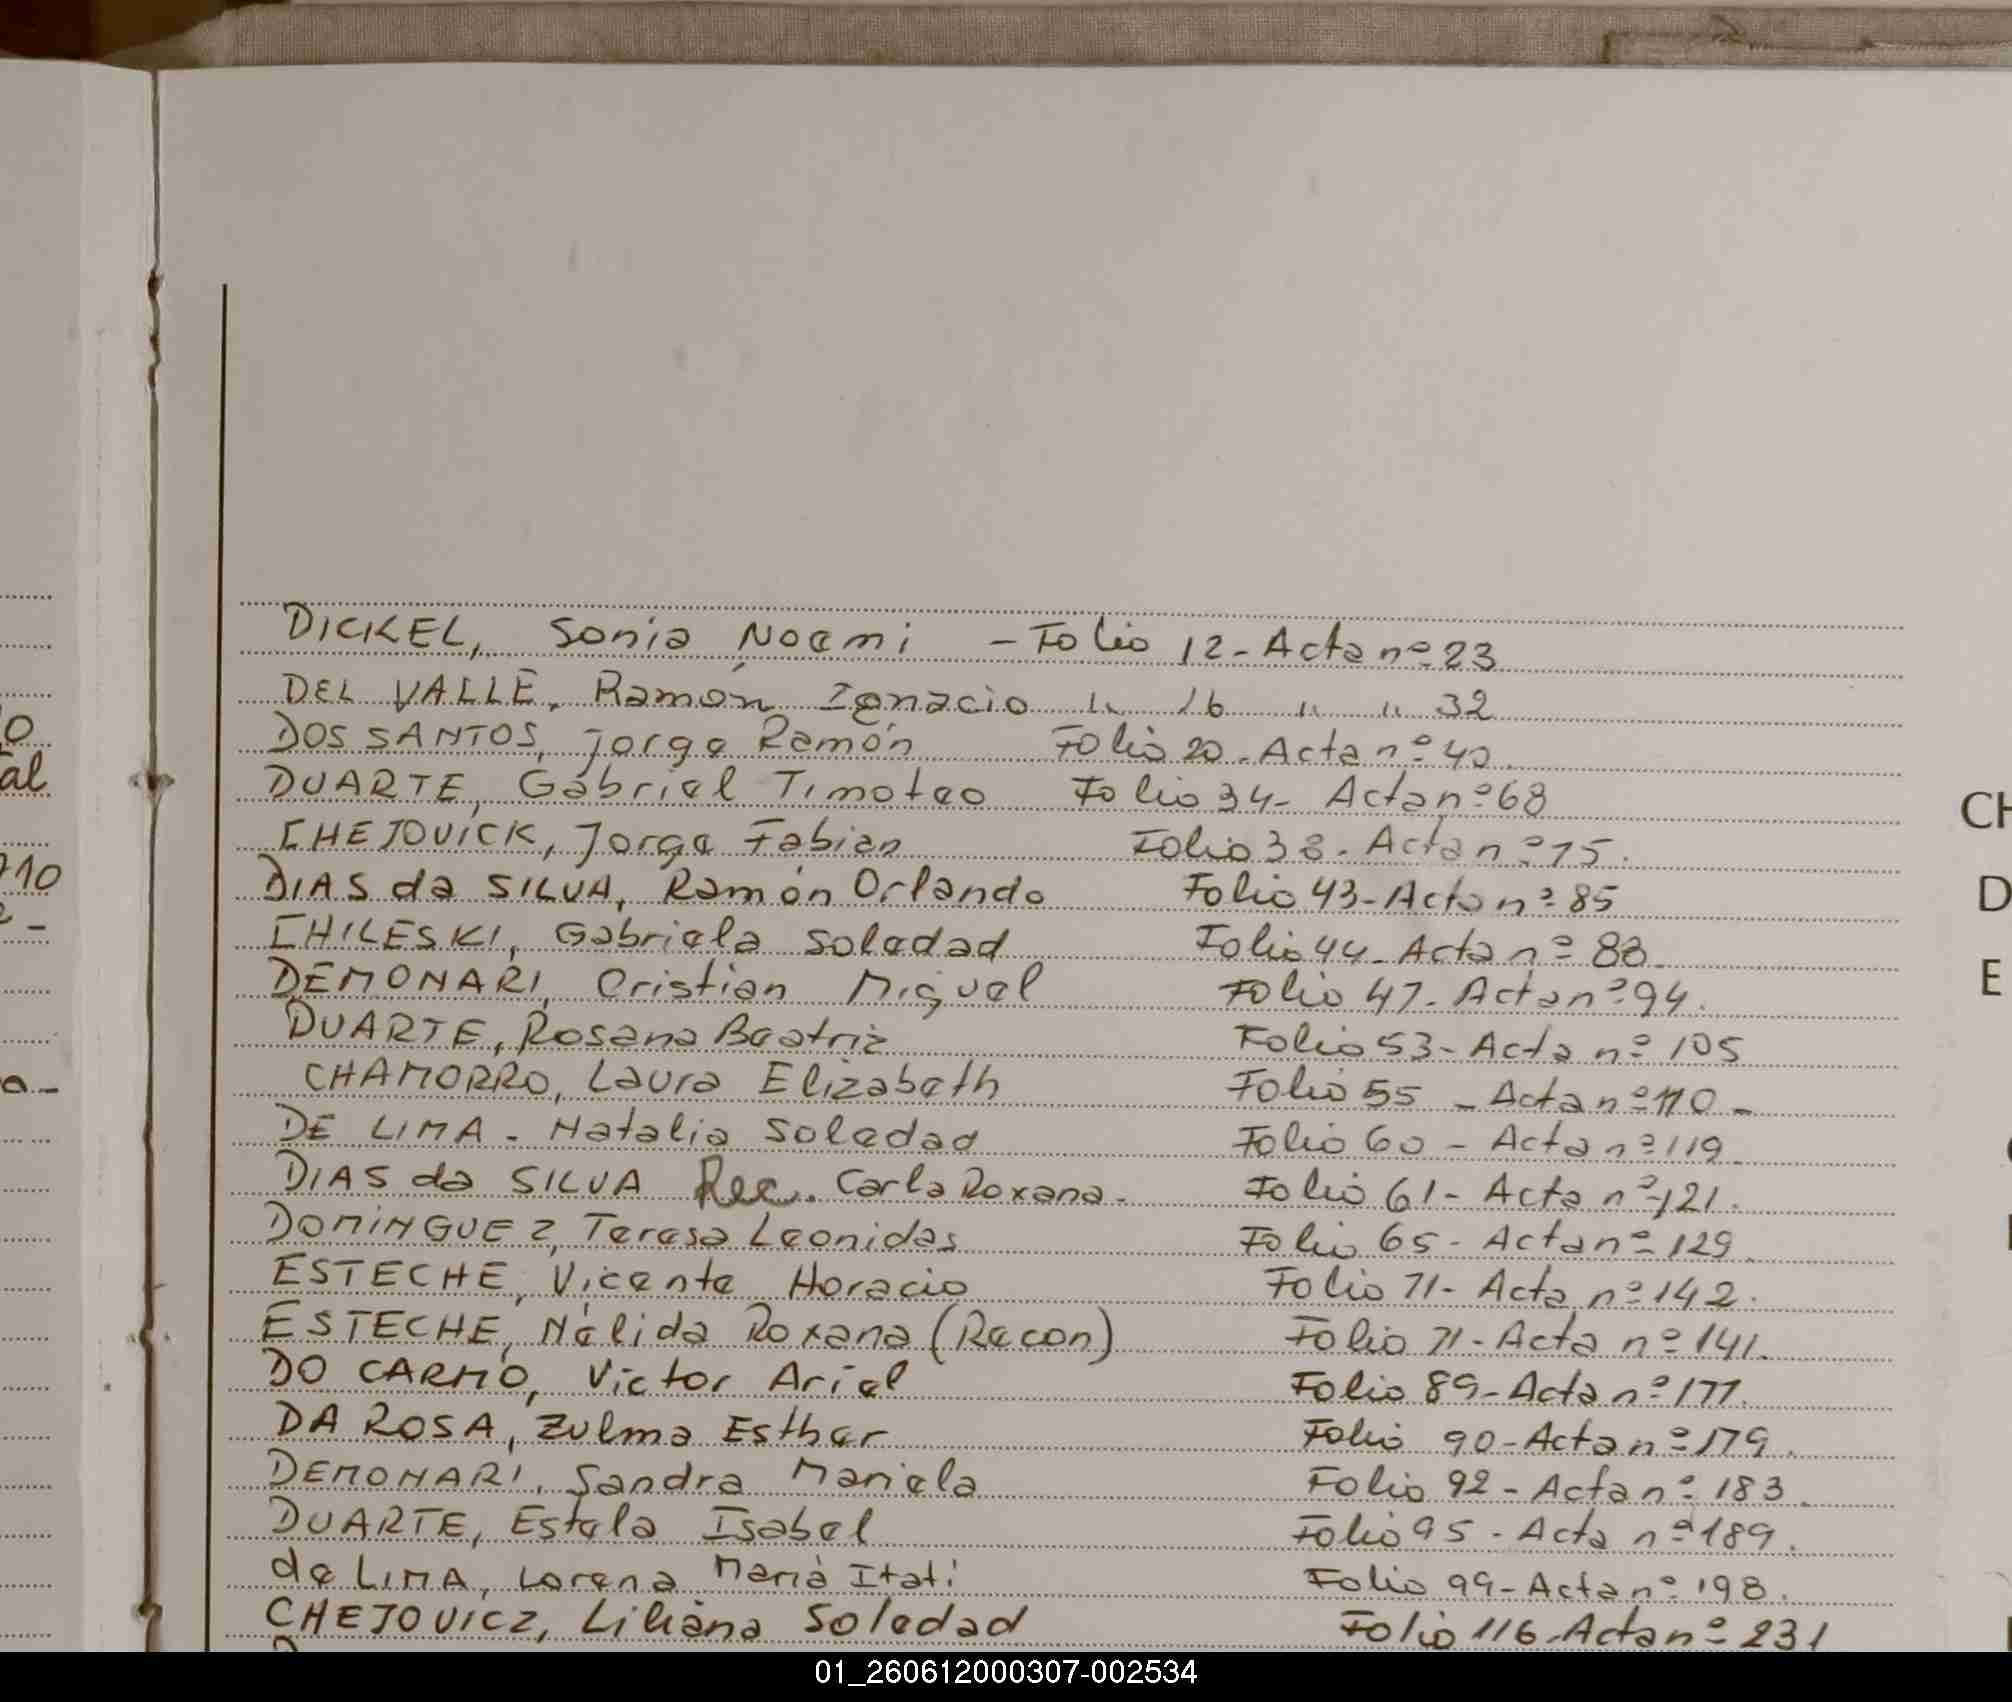 DICKEL, Sonia Noemi - Folio 12 - Acta nº 23
DEL VALLE, Ramón Ignacio " 16 " " 32
DOS SANTOS, Jorge Ramón Folio 20 - Acta nº 40
DUARTE, Gabriel Timoteo Folio 34 - Acta nº 68
CHEJOVICK, Jorge Fabian Folio 38 - Acta nº 75.
DIAS da SILVA, Ramón Orlando Folio 43 - Acta nº 85
CHILESKI, Gabriela Soledad Folio 44 - Acta nº 88
DEMONARI, Cristian Miguel Folio 47 - Acta nº 94.
DUARTE, Rosana Beatriz Folio 53 - Acta nº 105
CHAMORRO, Laura Elizabeth Folio 55 - Acta nº 110 -
DE LIMA - Natalia Soledad Folio 60 - Acta nº 119
DIAS da SILVA Rec. Carla Roxana - Folio 61 - Acta nº 121.
DOMINGUEZ, Teresa Leonidas Folio 65 - Acta nº 129
ESTECHE, Vicente Horacio Folio 71 - Acta nº 142.
ESTECHE, Nélida Roxana (Recon) Folio 71 - Acta nº 141.
DO CARMO, Victor Ariel Folio 89 - Acta nº 177.
DA ROSA, Zulma Esther Folio 90 - Acta nº 179.
DEMONARI, Sandra Mariela Folio 92 - Acta nº 183.
DUARTE, Estela Isabel Folio 95 - Acta nº 189.
de LIMA, Lorena Maria Itati Folio 99 - Acta nº 198.
CHEJOVICZ, Liliana Soledad Folio 116 - Acta nº 231
CH
D
E
01_260612000307-002534